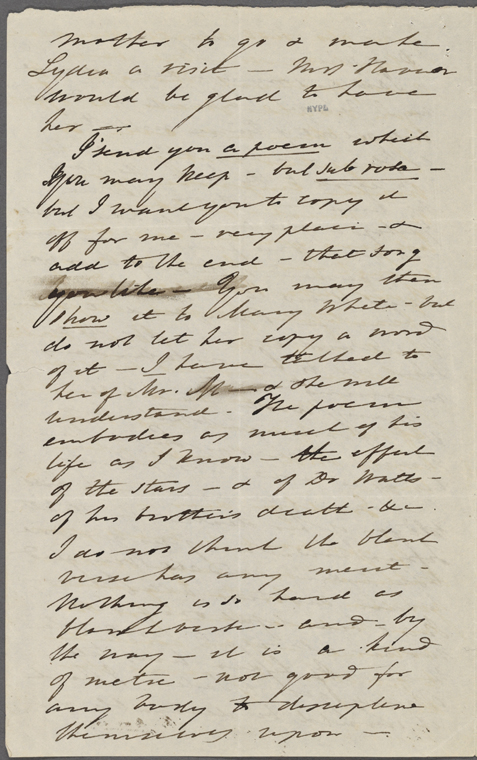 mother to go & make
Lydia a visit — Mrs
would be glad to have
her —
NYPL
I send you a poem which
you may keep — but sub rosa —
but I want you to copy it
off for me — very plain — &
add to the end — that song
you like — You may then
show it to Mary White — but
do not let her copy a word
of it — I have talked to
her of Mr. M — & she will
understand. The poem
embodies as much of his
life as I know — the effect
of the stars — & of Dr Watts —
of his brother's death — &c
I do not think the blank
verse has any merit —
Nothing is so hard as
blank verse — and — by
the way — it is a kind
of metre — not good for
any body to discipline
themselves upon —